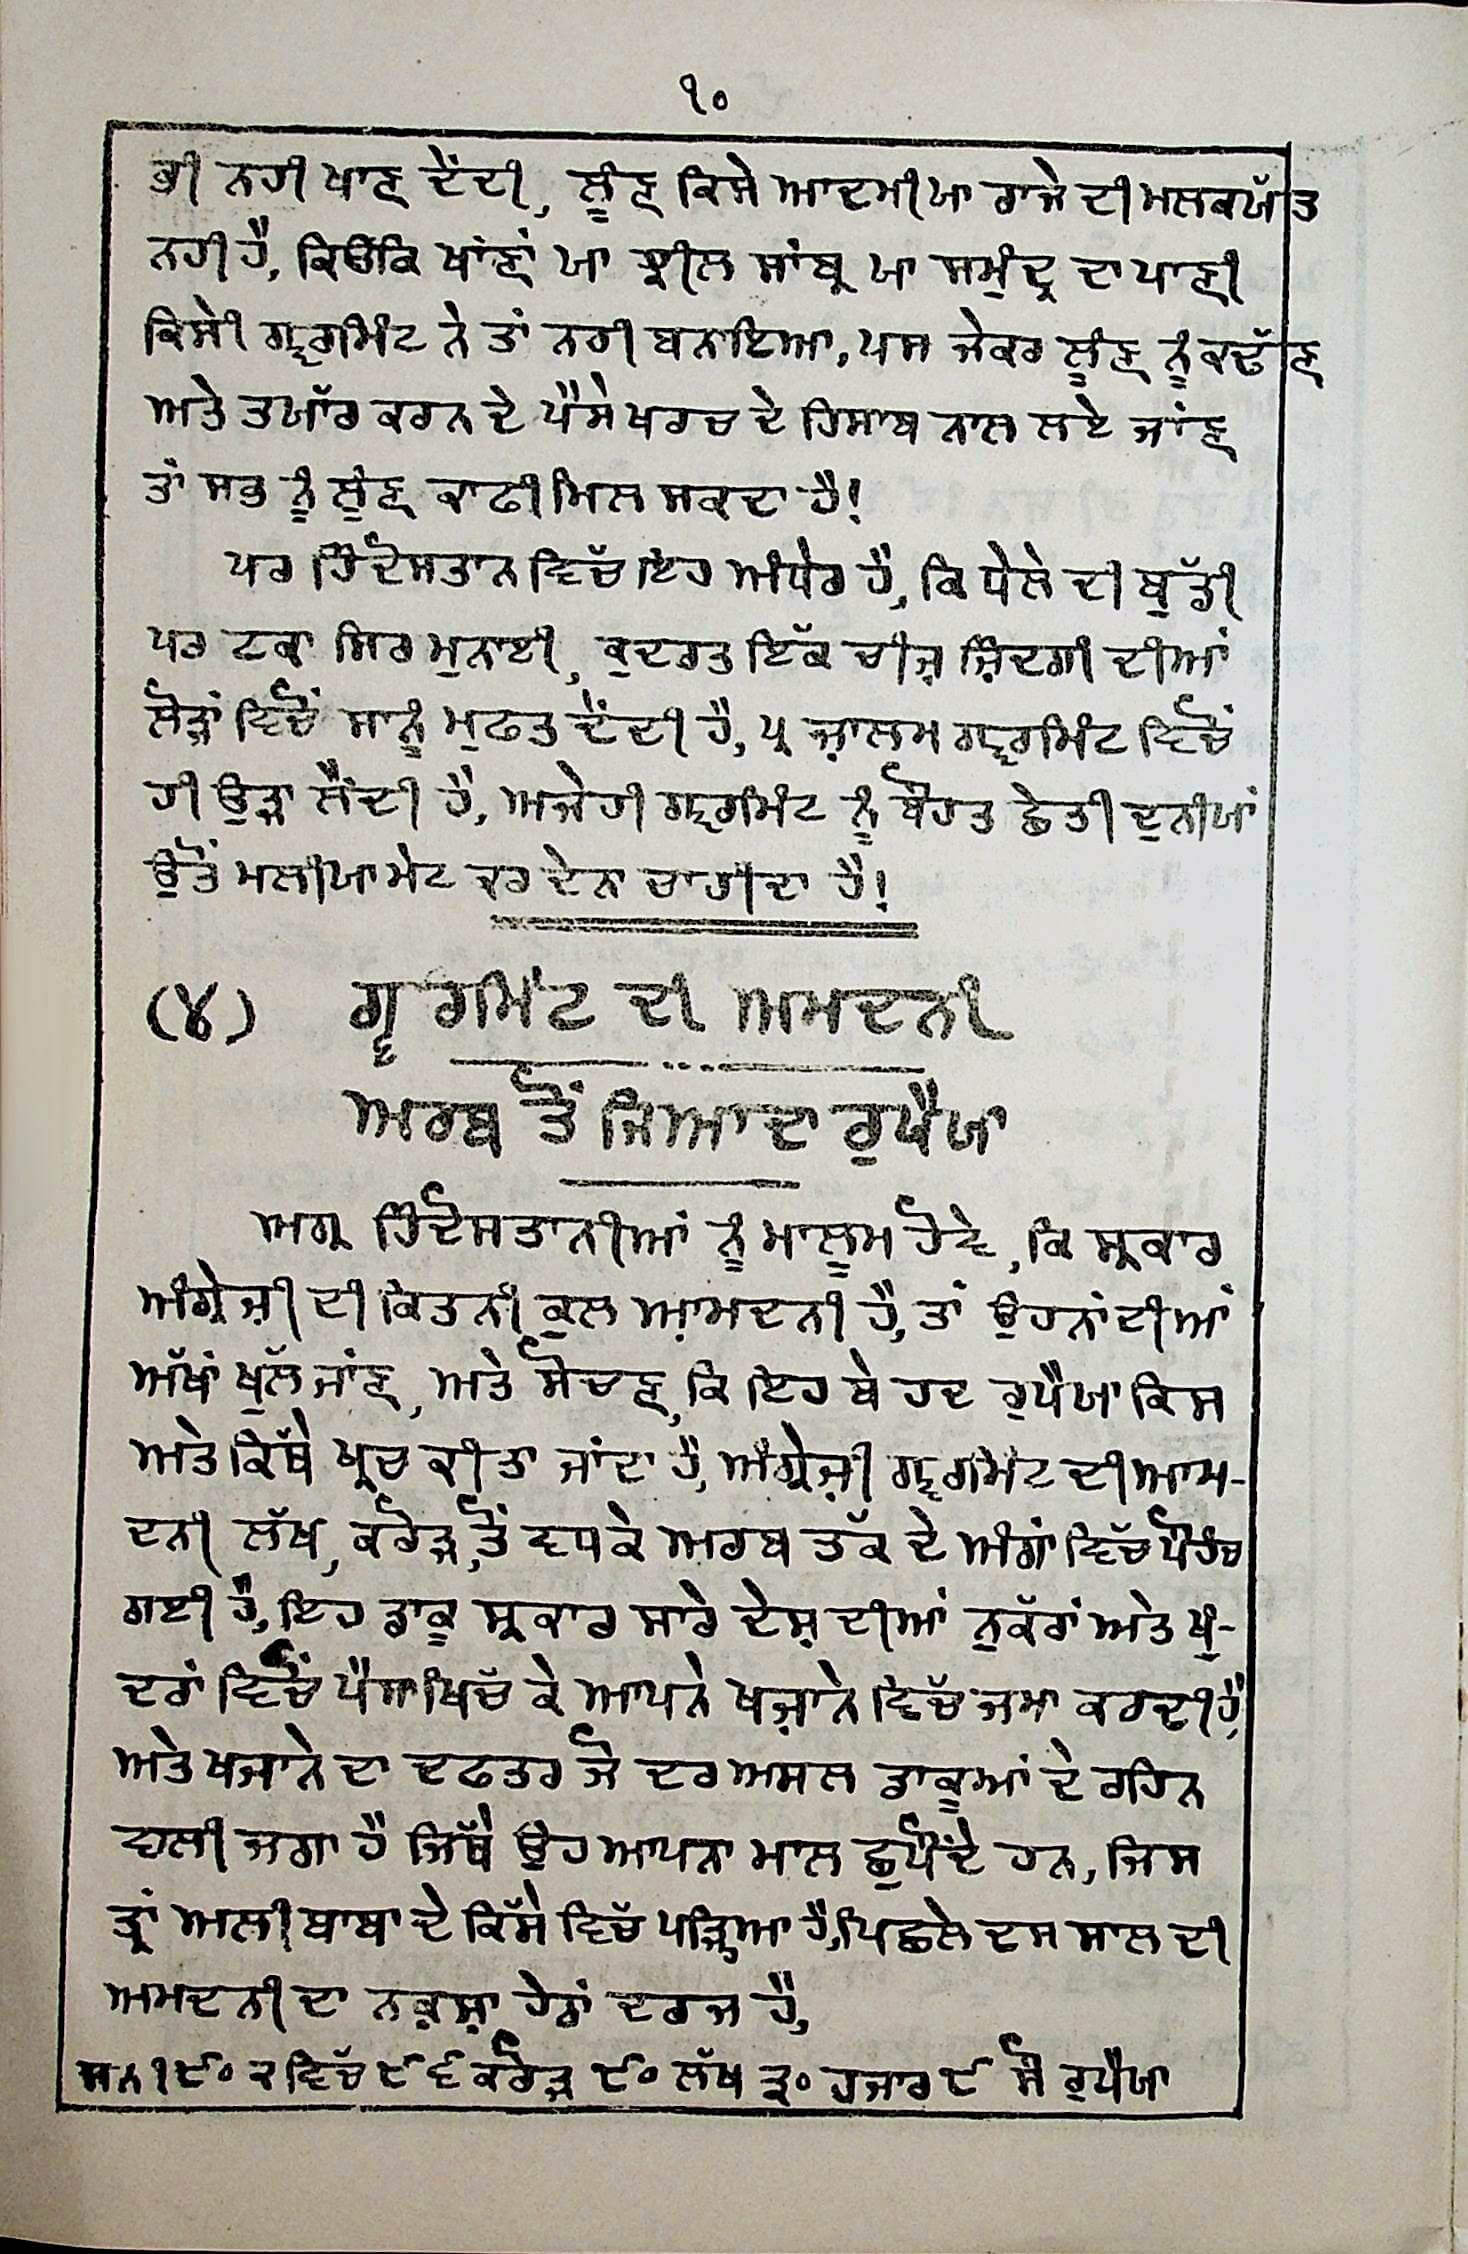 ੧੦
ਭੀ ਨਹੀ ਖਾਣ ਦੇਂਦੀ, ਲੂੰਣ ਕਿਸੇ ਆਦਮੀ ਯਾ ਰਾਜੇ ਦੀ ਮਲਕਯੱਤ
ਨਹੀ ਹੈ, ਕਿਉਂਕਿ ਖਾਂਣਾਂ ਯਾ ਝੀਲ ਸਾਂਬ੍ਰ ਯਾ ਸਮੁੰਦ੍ਰ ਦਾ ਪਾਣੀ
ਕਿਸੇ ਗਵ੍ਰਗਮਿੰਟ ਨੇ ਤਾਂ ਨਹੀ ਬਨਾਇਆ, ਪਸ ਜੇਕਰ ਲੂੰਣ ਨੂੰ ਕਢੱਣ
ਅਤੇ ਤਯਾੱਰ ਕਰਨ ਦੇ ਪੈਸੇ ਖਰਚ ਦੇ ਹਿਸਾਬ ਨਾਲ ਲਏ ਜਾਂਣ
ਤਾਂ ਸਭ ਨੂੰ ਲੂੰਣ ਕਾਫੀ ਮਿਲ ਸਕਦਾ ਹੈ!
ਪਰ ਹਿੰਦੋਸਤਾਨ ਵਿਚੱ ਇਹ ਅੰਧੇਰ ਹੈ, ਕਿ ਧੇਲੇ ਦੀ ਬੁੱਡੀ
ਪਰ ਟਕਾ ਸਿਰ ਮੁਨਾਈ, ਕੁਦਰਤ ਇੱਕ ਚੀਜ਼ ਜ਼ਿੰਦਗੀ ਦੀਆਂ
ਲੋੜਾਂ ਵਿਚੋਂ ਸਾਨੂੰ ਮੁਫਤ ਦੇਂਦੀ ਹੈ, ਪ੍ਰ ਜ਼ਾਲਮ ਗਵ੍ਰਗਮਿੰਟ ਵਿਚੋਂ
ਹੀ ਉੜਾ ਲੈਂਦੀ ਹੈ, ਅਜੇਹੀ ਗਵ੍ਰਗਮਿੰਟ ਨੂੰ ਬੌਹਤ ਛੇਤੀ ਦੁਨੀਯਾਂ
ਉਤੋਂ ਮਲੀਯਾਮੇਟ ਕਰ ਦੇਨਾ ਚਾਹੀਦਾ ਹੈ!
(੪) ਗਵ੍ਰਗਮਿੰਟ ਦੀ ਅਮਦਨੀ
ਅਰਬ ਤੋਂ ਜਿਆਦਾ ਰੁਪੈਯਾ
ਅਗ੍ਰ ਹਿੰਦੋਸਤਾਨੀਆਂ ਨੂੰ ਮਾਲੂਮ ਹੋਵੇ, ਕਿ ਸ੍ਰਕਾਰ
ਅੰਗ੍ਰੇਜ਼ੀ ਦੀ ਕਿਤਨੀ ਕੁਲ ਆਮਦਨੀ ਹੈ, ਤਾਂ ਉਹਨਾਂ ਦੀਆਂ
ਅੱਖਾਂ ਖੁਲੱ ਜਾਂਣ, ਅਤੇ ਸੋਚਣ, ਕਿ ਇਹ ਬੇ ਹਦ ਰੁਪੈਯਾ ਕਿਸ
ਅਤੇ ਕਿੱਥੇ ਖ੍ਰਚ ਕੀਤਾ ਜਾਂਦਾ ਹੈ, ਅੰਗ੍ਰੇਜ਼ੀ ਗਵ੍ਰਗਮੇਂਟ ਦੀ ਆਮ-
ਦਨੀ ਲੱਖ, ਕਰੋੜ, ਤੋਂ ਵਧਕੇ ਅਰਬ ਤੱਕ ਦੇ ਅੰਗਾਂ ਵਿੱਚ ਪੌਹੰਚ
ਗਈ ਹੈ, ਇਹ ਡਾਕੂ ਸ੍ਰਕਾਰ ਸਾਰੇ ਦੇਸ਼ ਦੀਆਂ ਨੁਕੱਰਾਂ ਅਤੇ ਖੁੰ-
ਦਰਾਂ ਵਿਚੋਂ ਪੈਸਾ ਖਿਚੱ ਕੇ ਆਪਨੇ ਖਜ਼ਾਨੇ ਵਿਚੱ ਜਮਾ ਕਰਦੀ ਹੈ,
ਅਤੇ ਖਜਾਨੇ ਦਾ ਦਫਤਰ ਜੋ ਦਰ ਅਸਲ ਡਾਕੂਆਂ ਦੇ ਰਹਿਨ
ਵਾਲੀ ਜਗਾ ਹੈ ਜਿੱਥੇ ਉਹ ਆਪਨਾ ਮਾਲ ਛੁਪੌਂਦੇ ਹਨ, ਜਿਸ
ਤ੍ਰਾਂ ਅਲੀ ਬਾਬਾ ਦੇ ਕਿੱਸੇ ਵਿਚੱ ਪੜ੍ਹਿਆ ਹੈ, ਪਿਛਲੇ ਦਸ ਸਾਲ ਦੀ
ਅਮਦਨੀ ਦਾ ਨਕਸ਼ਾ ਹੇਠਾਂ ਦਰਜ ਹੈ,
ਸਨ ੧੯੦੨ ਵਿੱਚ ੯੬ ਕਰੋੜ ੯੦ ਲੱਖ ੩੦ ਹਜਾਰ ੯ ਸੌ ਰੁਪੈਯਾ